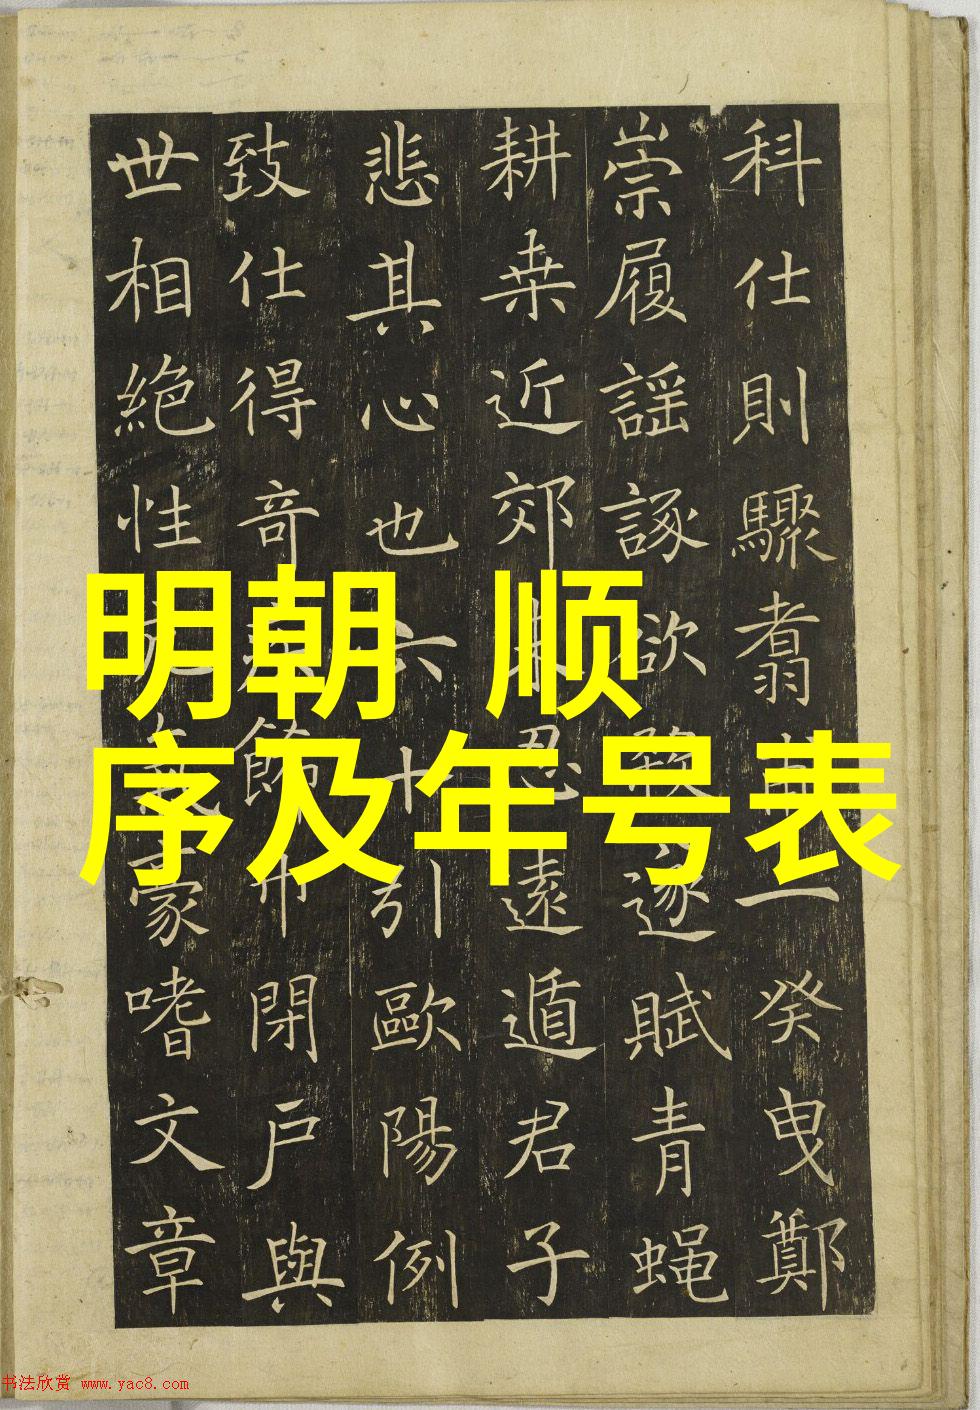 科仕則驟翥一癸曳鄭
崇履謡諑欲逐賦青蝿
耕桒近郊忍遠遁君子
悲其心也六十引歐陽例
致仕得奇飾巾閉戶與
世相絶性豪嗜文章
明朝 顺
序及年号表
书法欣赏 www.yac8.com